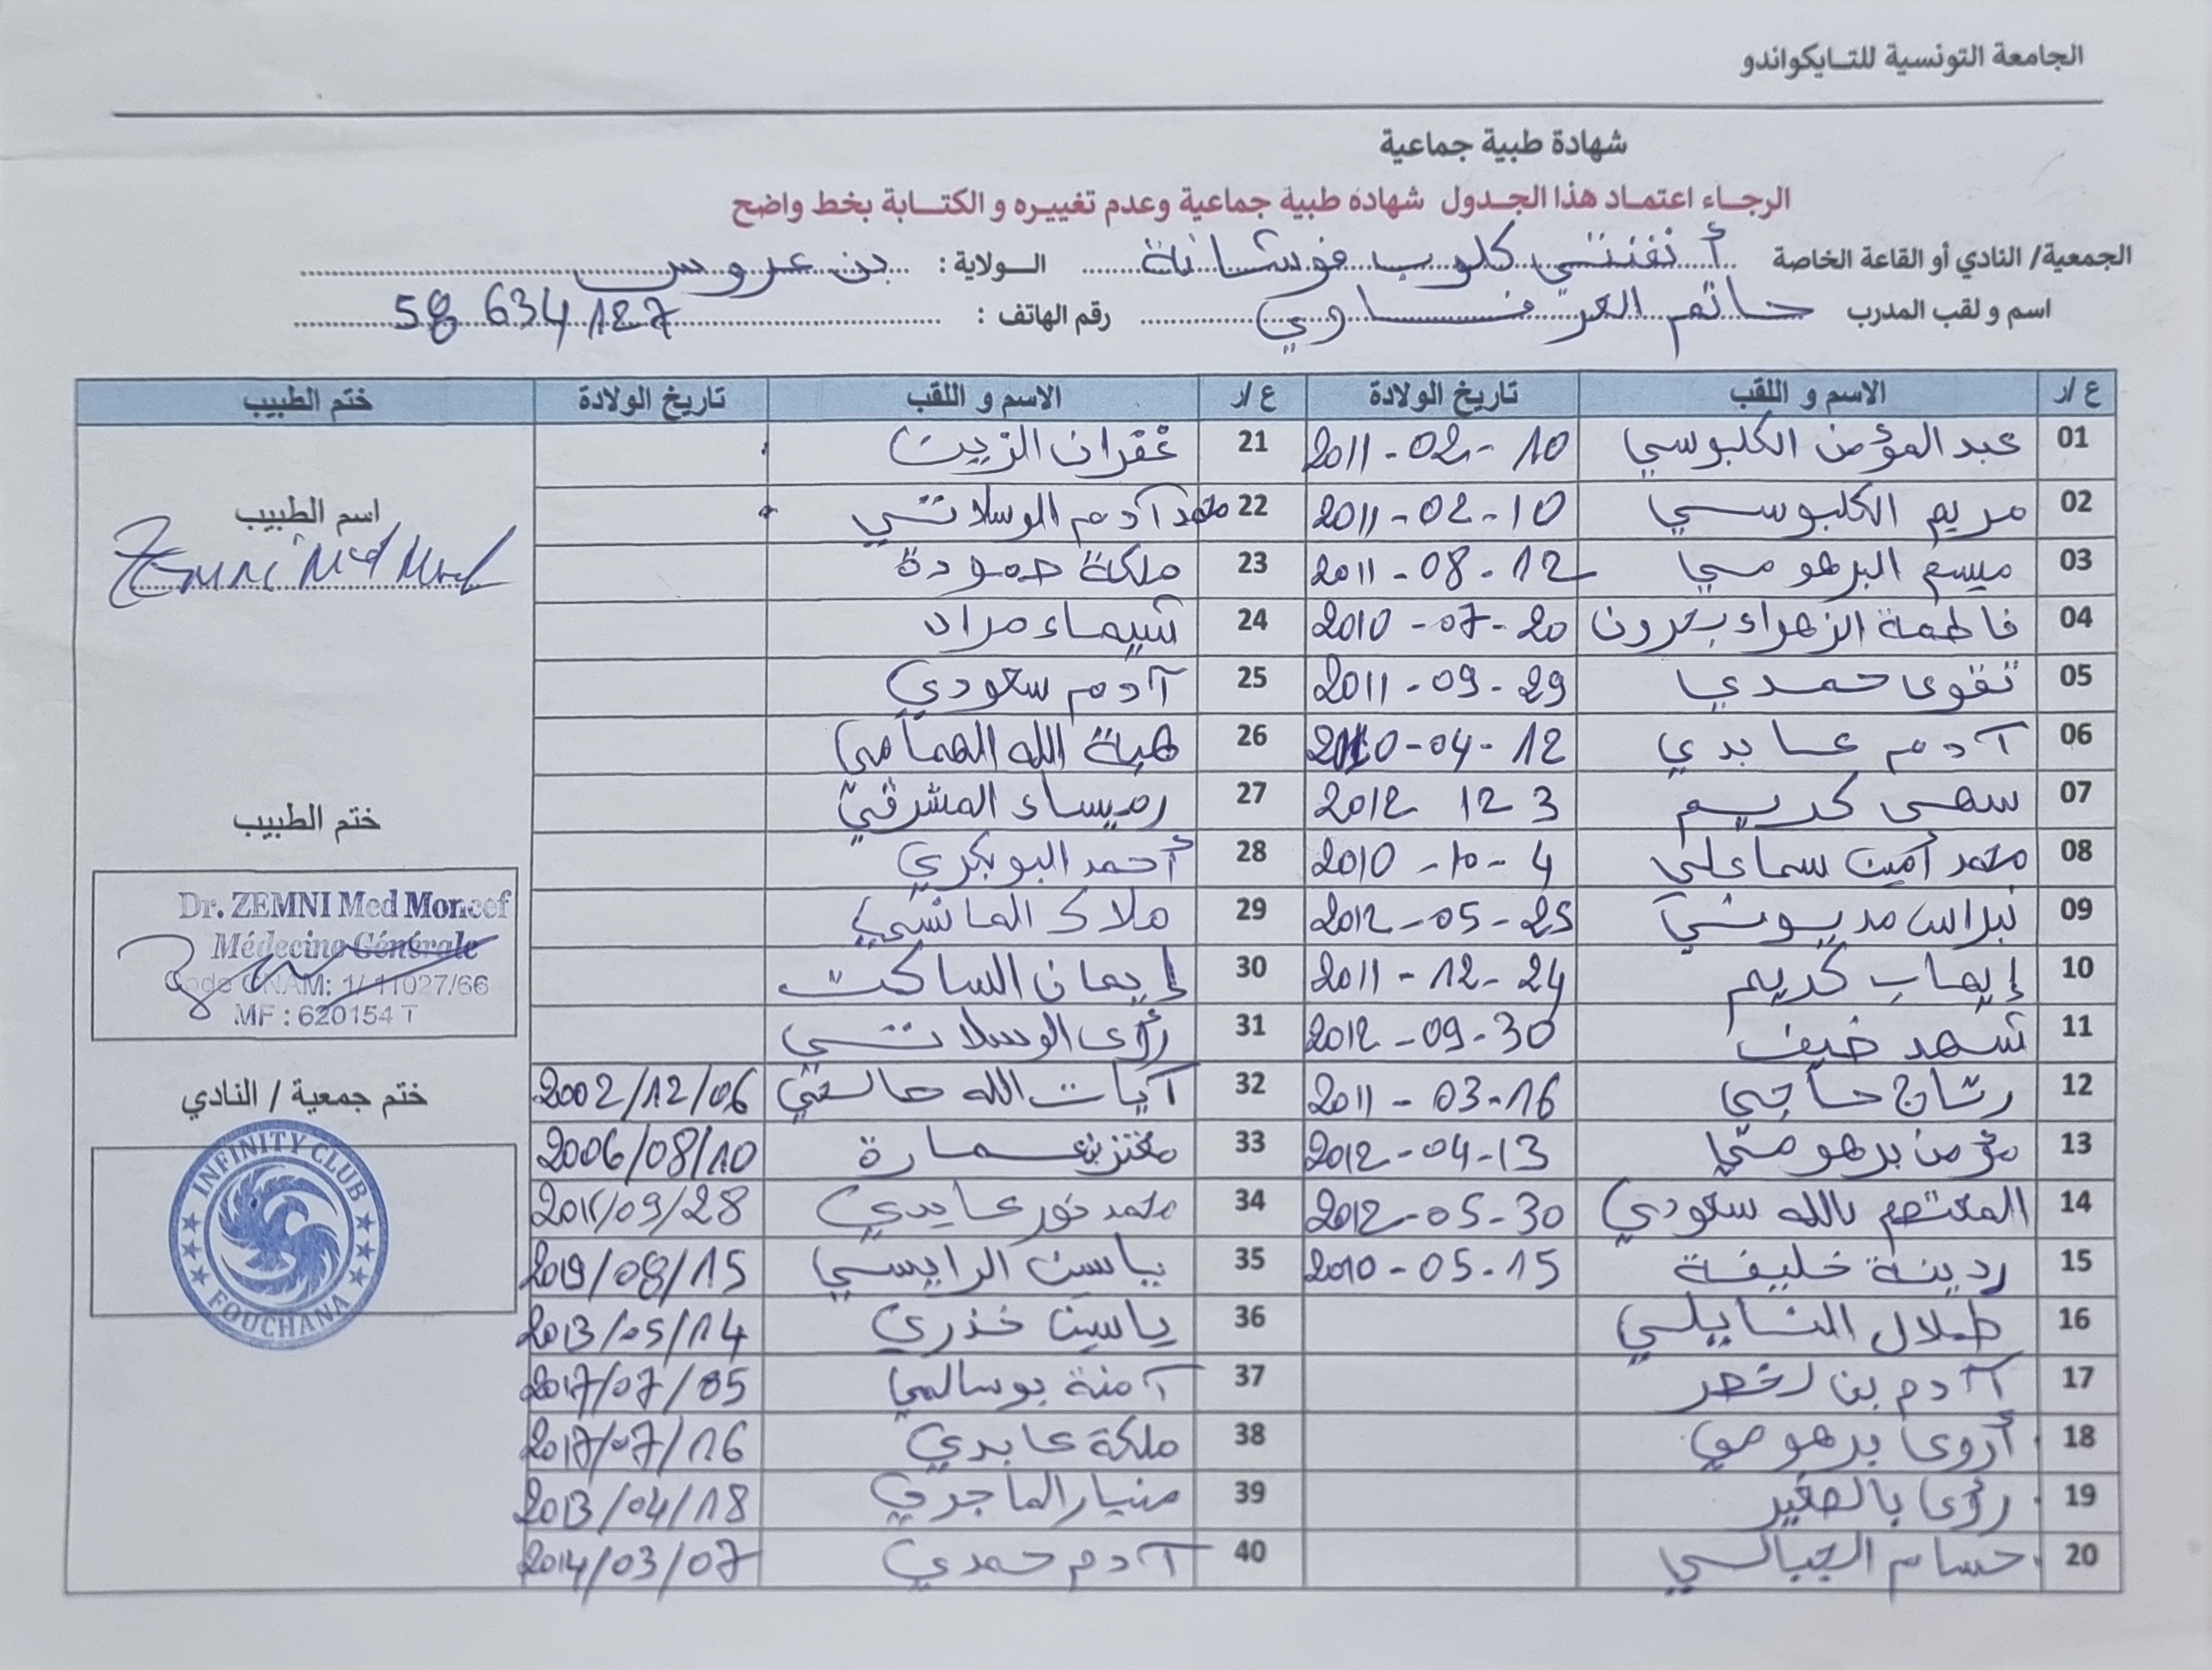 الجامعة التونسية للتايكواندو
شهادة طبية جماعية
الرجاء اعتماد هذا الجدول شهادة طبية جماعية وعدم تغييره و الكتابة بخط واضح
الجمعية/ النادي أو القاعة الخاصة أنفنتي كلوب فوشانة الولاية : بن عروس
اسم و لقب المدرب حاتم العرفاوي رقم الهاتف : 58 634 127
ع/ر الاسم و اللقب تاريخ الولادة ع/ر الاسم و اللقب تاريخ الولادة ختم الطبيب
01 عبد المؤمن الكلبوسي 2011-02-10 21 غفران الزين
02 مريم الكلبوسي 2011-02-10 22 محمد آدم الوسلاتي
03 ميسم البرهومي 2011-08-12 23 ملكة حمودة
04 فاطمة الزهراء 2010-07-20 24 شيماء مراد
05 تقوى حمدي 2011-09-29 25 آدم سعودي
06 آدم عابدي 2010-04-12 26 هبة الله الهمامي
07 سهى كريم 2012 12 3 27 رميساء المشرقي
08 محمد أمين سماعلي 2010-10-4 28 أحمد البوبكري
09 نبراس مديوني 2012-05-25 29 ملاك المانسي
10 إيهاب كريم 2011-12-24 30 إيمان الساكت
11 شهد ضيف 2012-09-30 31 رؤى الوسلاتي
12 رتاج حاجي 2011-03-16 32 آيات الله حالفي 2002/12/06
13 مؤمن برهومي 2012-04-13 33 معتز بن عمارة 2006/08/10
14 المعتصم بالله سعودي 2012-05-30 34 محمد نور عابدي 2011/09/28
15 ردينة خليفة 2010-05-15 35 ياسين الرايسي 2019/08/15
16 طلال النايلي 36 ياسين خذري 2013/05/14
17 آدم بن لخضر 37 آمنة بوسالمي 2017/07/05
18 أروى برهومي 38 ملكة عابدي 2017/07/16
19 رؤى بالصغير 39 منيار الماجري 2013/04/18
20 حسام الجبالي 40 آدم حمدي 2014/03/07
اسم الطبيب
Zemni Med Moncef
ختم الطبيب
Dr. ZEMNI Med Moncef
Médecine Générale
Code CNAM: 1/ 11027/66
MF : 620154 T
ختم جمعية / النادي
INFINITY CLUB
FOUCHANA